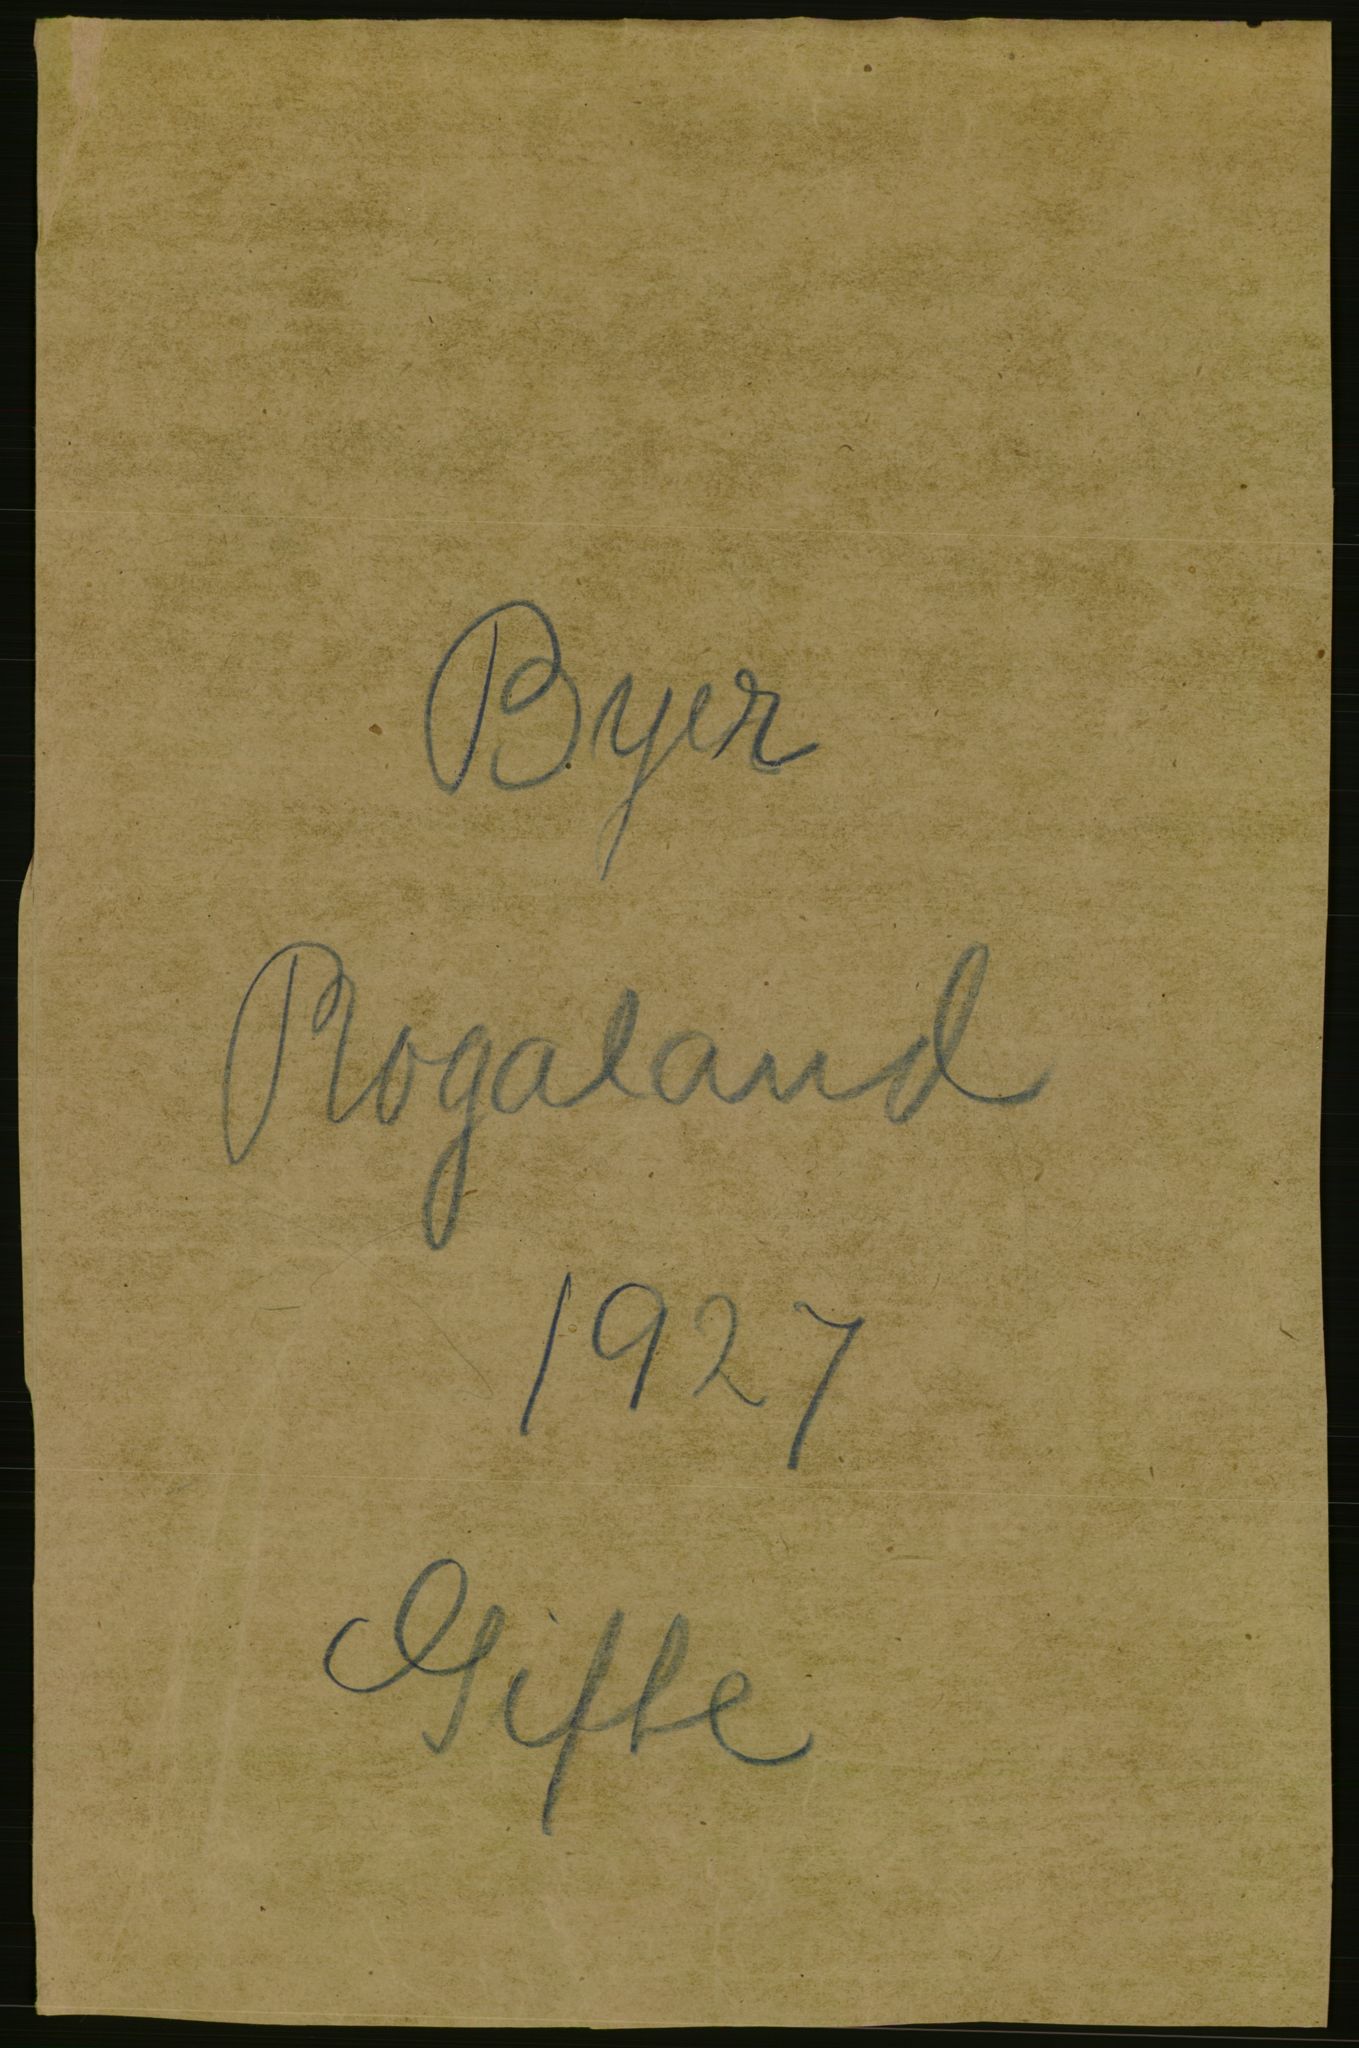 Byer
Rogaland
1927
Gifte